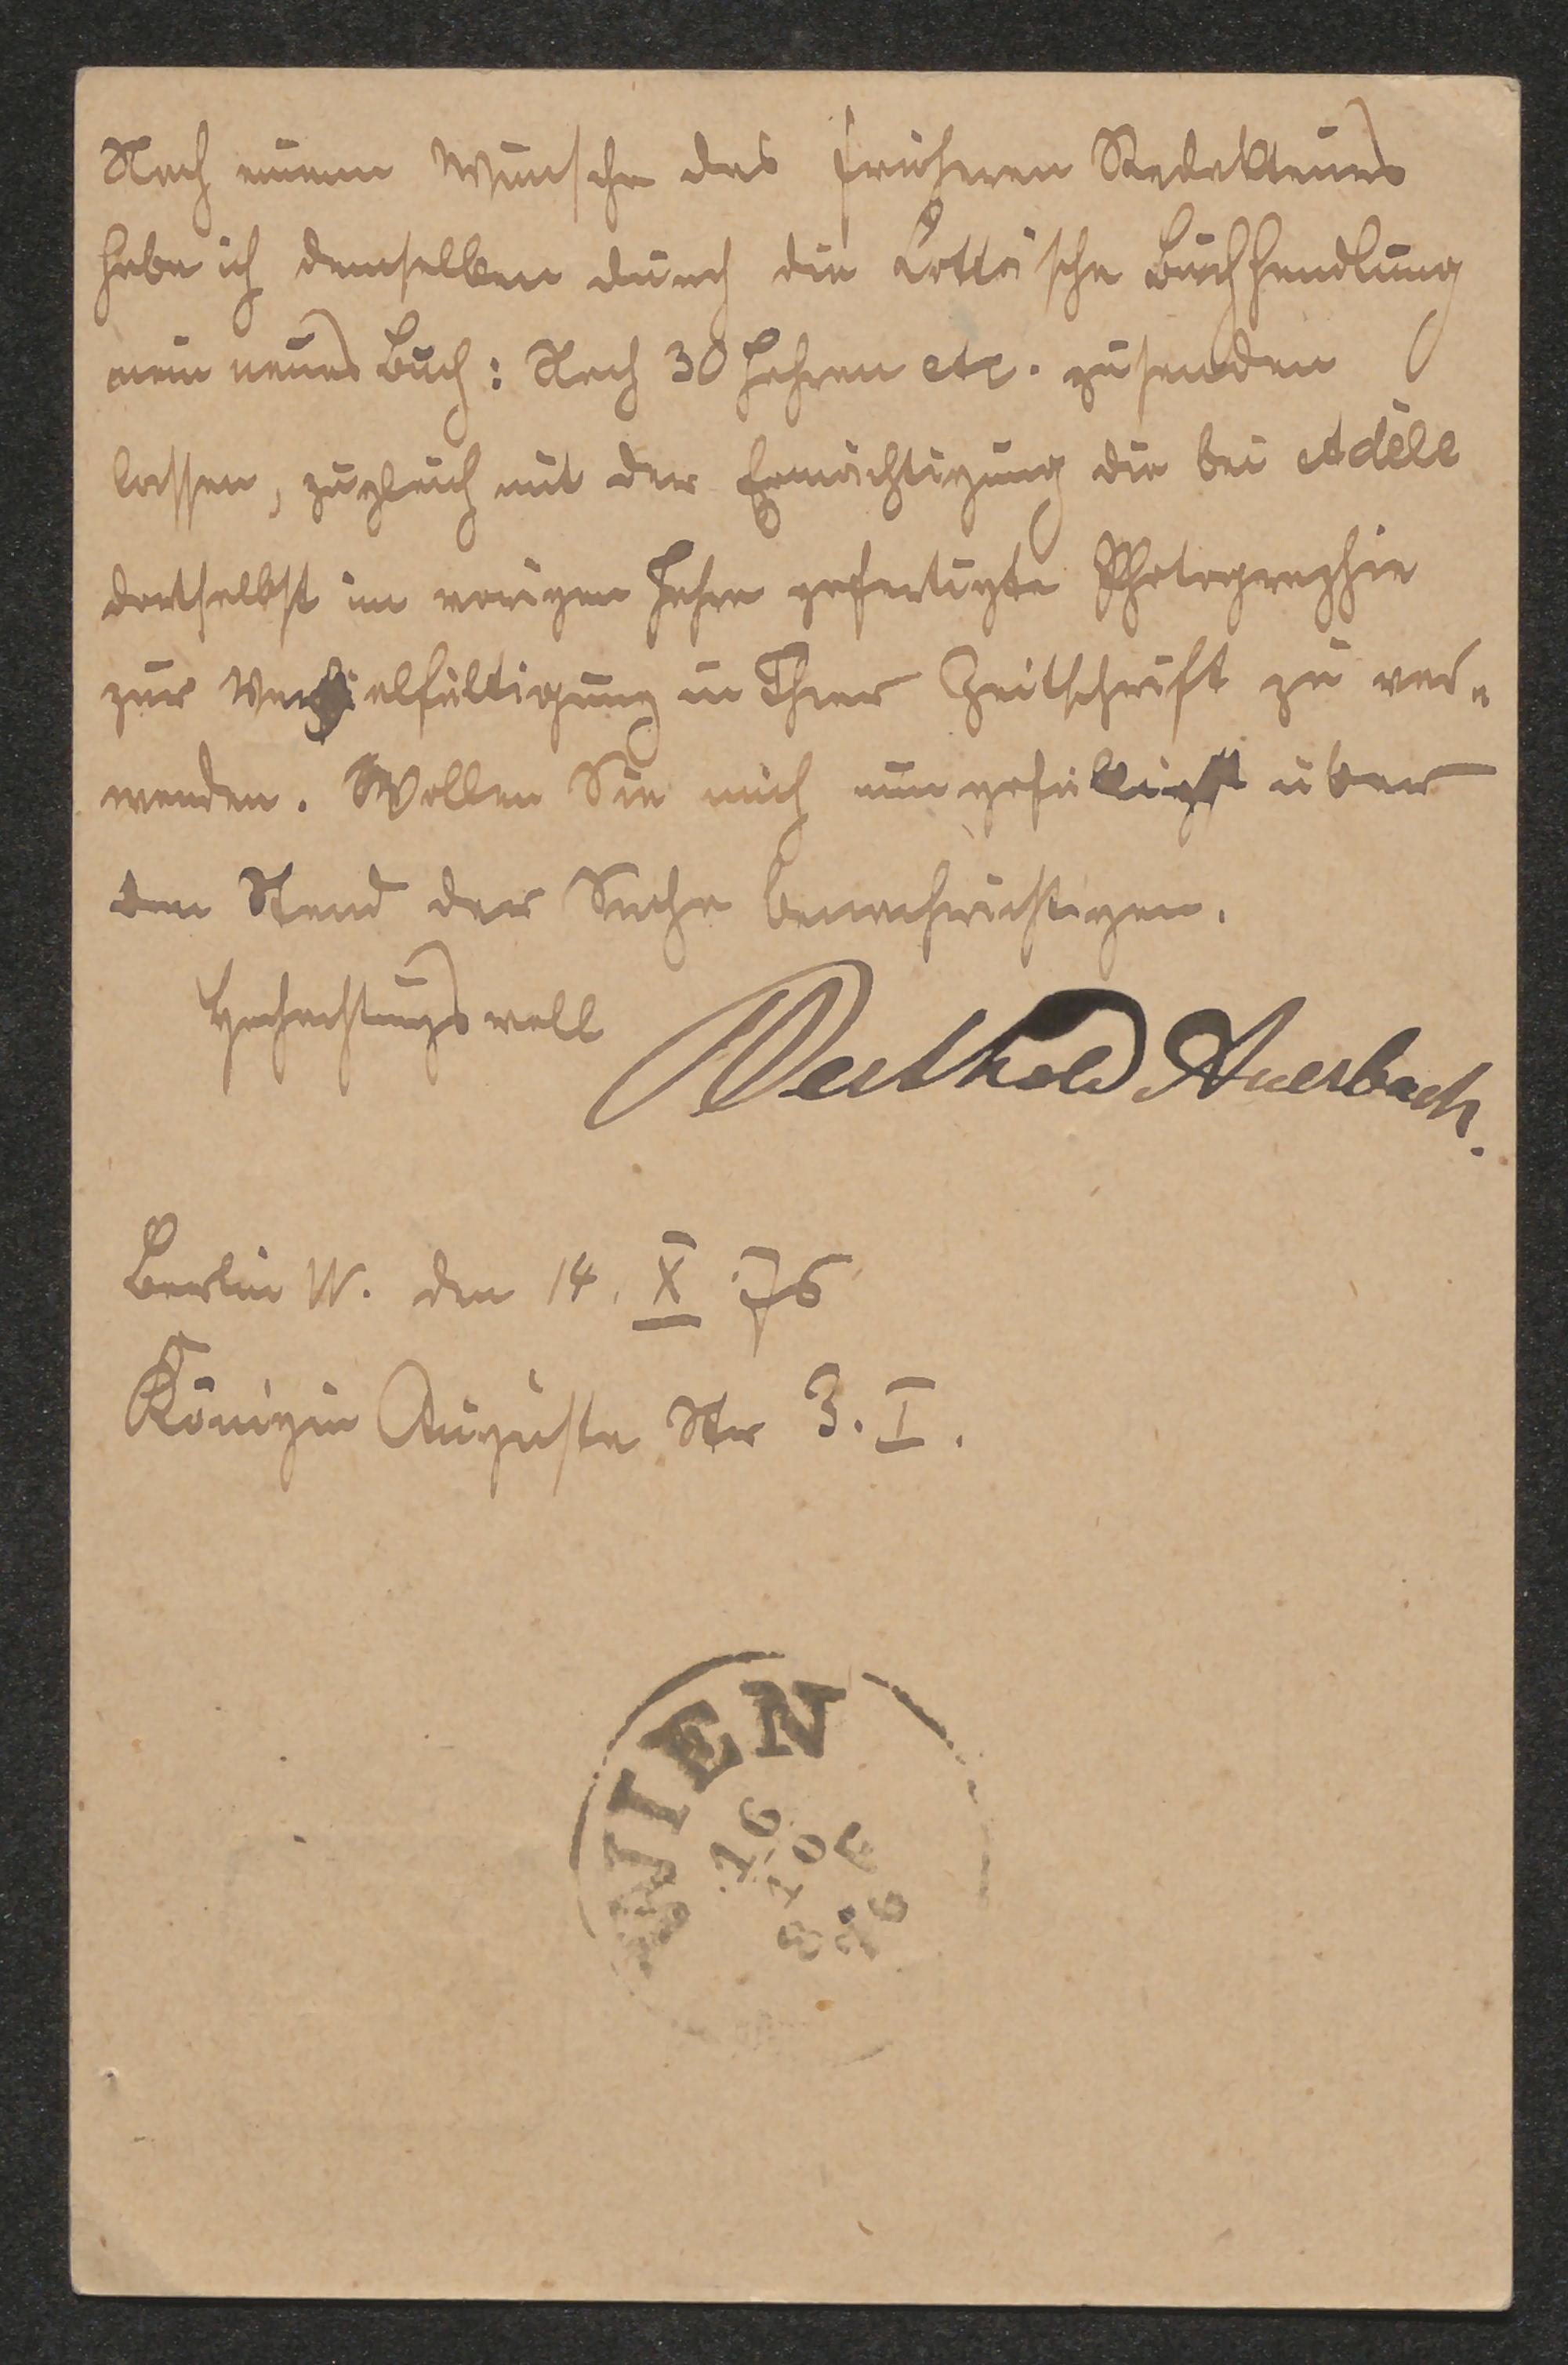 Nach einem Wunsche des früheren Redakteurs
habe ich demselben durch die Cotta'sche Buchhandlung
mein neues Buch: Nach 30 Jahren etc. zusenden
lassen, zugleich mit der Ermächtigung die bei Adèle
dortselbst im vorigen Jahre gefertigte Photographie
zur Vervielfältigung in Ihrer Zeitschrift zu ver-
wenden. Wollen Sie mich nun gefälligst über
den Stand der Sache benachrichtigen.
Hochachtungsvoll Berthold Auerbach.
Berlin W. den 14. X 76
Königin Augusta Str 3. I.
WIEN
16
10 F
8 76